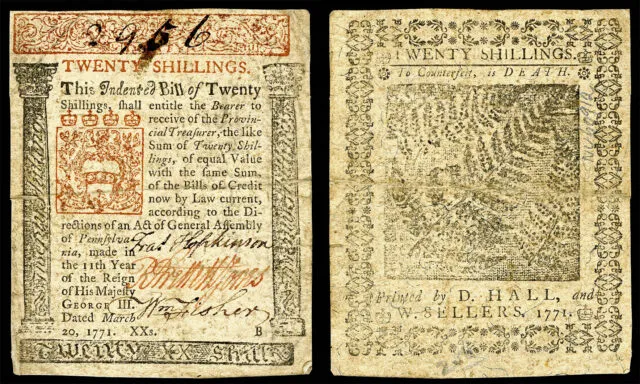 2956
TWENTY SHILLINGS.
This Indented Bill of Twenty
Shillings, shall entitle the Bearer to
receive of the Provin-
cial Treasurer, the like
Sum of Twenty Shil-
lings, of equal Value
with the same Sum,
of the Bills of Credit
now by Law current,
according to the Di-
rections of an Act of General Assembly
of Pennsylva-
nia, made in
the 11th Year
of the Reign
of His Majesty
GEORGE III.
Dated March
20, 1771. XXs.
Fras Hopkinson
Wm Fisher
B
Twenty XX Shill
TWENTY SHILLINGS.
To Counterfeit, is DEATH.
Printed by D. HALL, and
W. SELLERS, 1771.